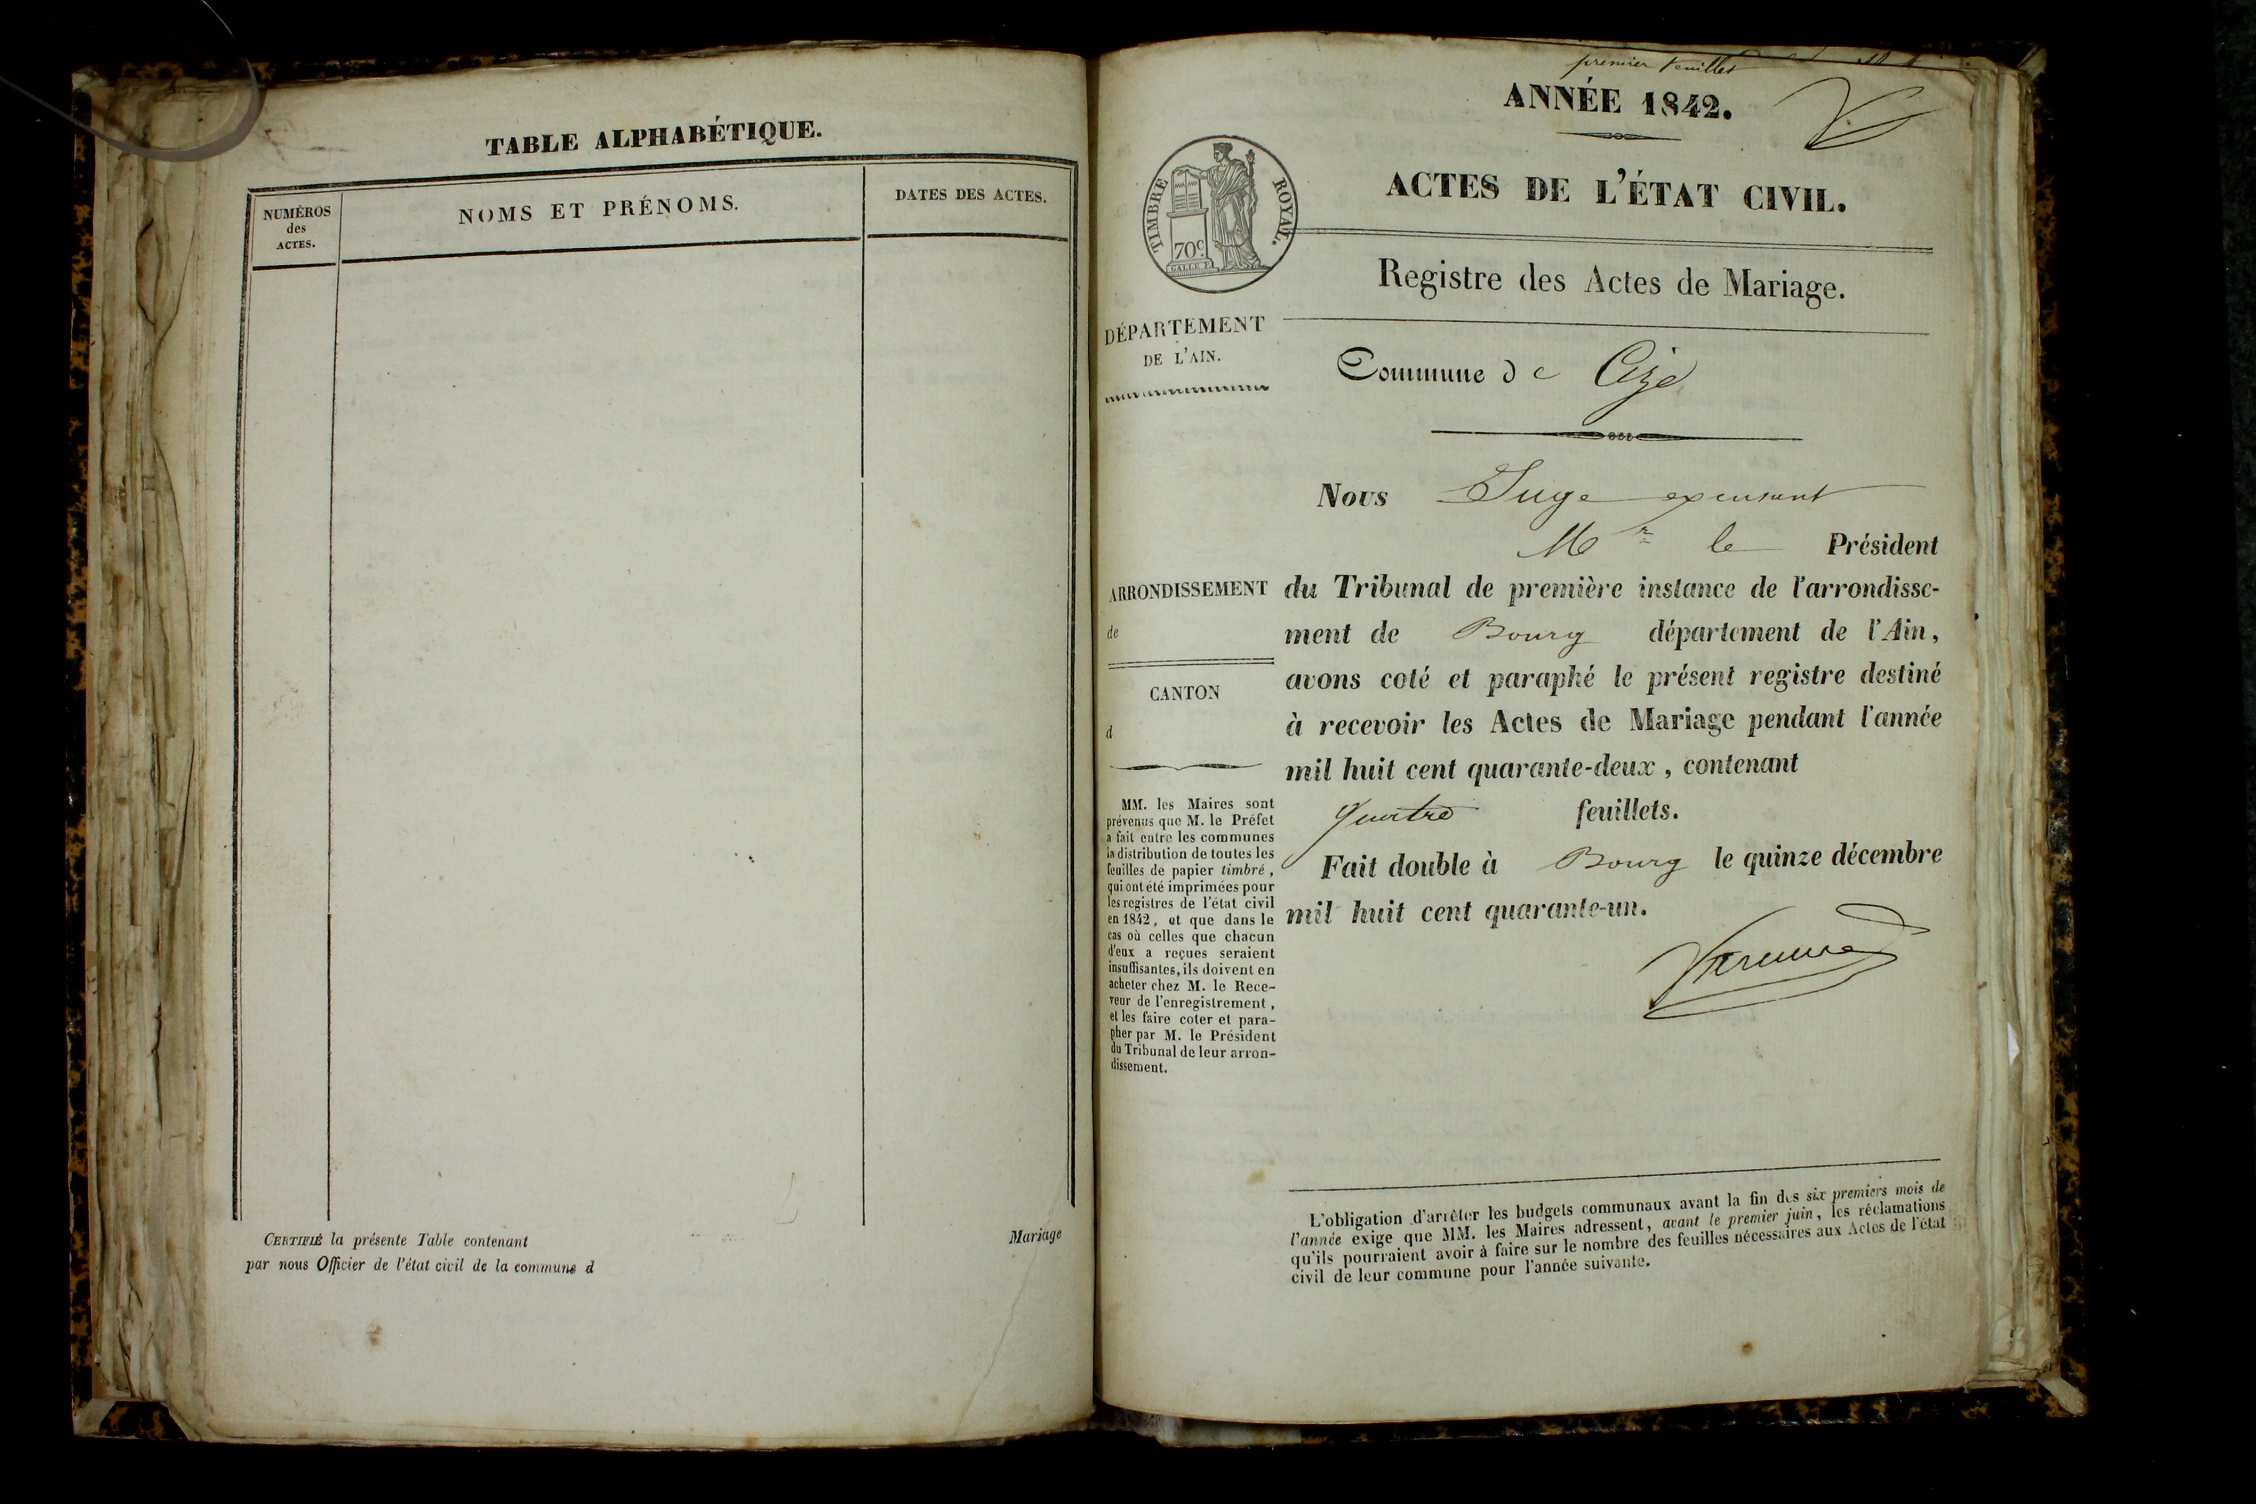 TABLE ALPHABÉTIQUE.
NUMÉROS
des
ACTES.
NOMS ET PRÉNOMS.
DATES DES ACTES.
CERTIFIÉ la présente Table contenant
Mariage
par nous Officier de l'état civil de la commune d
premier feuillet
ANNÉE 1842.
TIMBRE ROYAL.
70c
ACTES DE L'ÉTAT CIVIL.
Registre des Actes de Mariage.
DÉPARTEMENT
DE L'AIN.
Commune de Cize
Nous Juge
Mr le Président
ARRONDISSEMENT
de
CANTON
d
du Tribunal de première instance de l'arrondisse-
ment de Bourg département de l'Ain,
avons coté et paraphé le présent registre destiné
à recevoir les Actes de Mariage pendant l'année
mil huit cent quarante-deux, contenant
quatre feuillets.
Fait double à Bourg le quinze décembre
mil huit cent quarante-un.
MM. les Maires sont
prévenus que M. le Préfet
a fait entre les communes
la distribution de toutes les
feuilles de papier timbré,
qui ont été imprimées pour
les registres de l'état civil
en 1842, et que dans le
cas où celles que chacun
d'eux a reçues seraient
insuffisantes, ils doivent en
acheter chez M. le Rece-
veur de l'enregistrement,
et les faire coter et para-
pher par M. le Président
du Tribunal de leur arron-
dissement.
L'obligation d'arrêter les budgets communaux avant la fin des six premiers mois de
l'année exige que MM. les Maires adressent, avant le premier juin, les réclamations
qu'ils pourraient avoir à faire sur le nombre des feuilles nécessaires aux Actes de l'état
civil de leur commune pour l'année suivante.